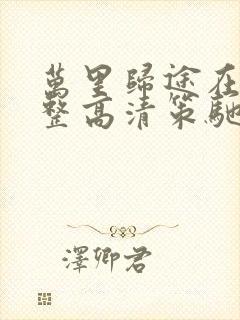 萬里歸途在
整高清策馳
澤卿君